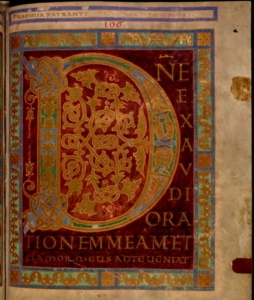 PRAESIDIA PATRANTI
106
D
NE
E
X
A
V
DI
ORA
TIONEM MEAM ET
CLAMOR MEUS AD TE VENIAT